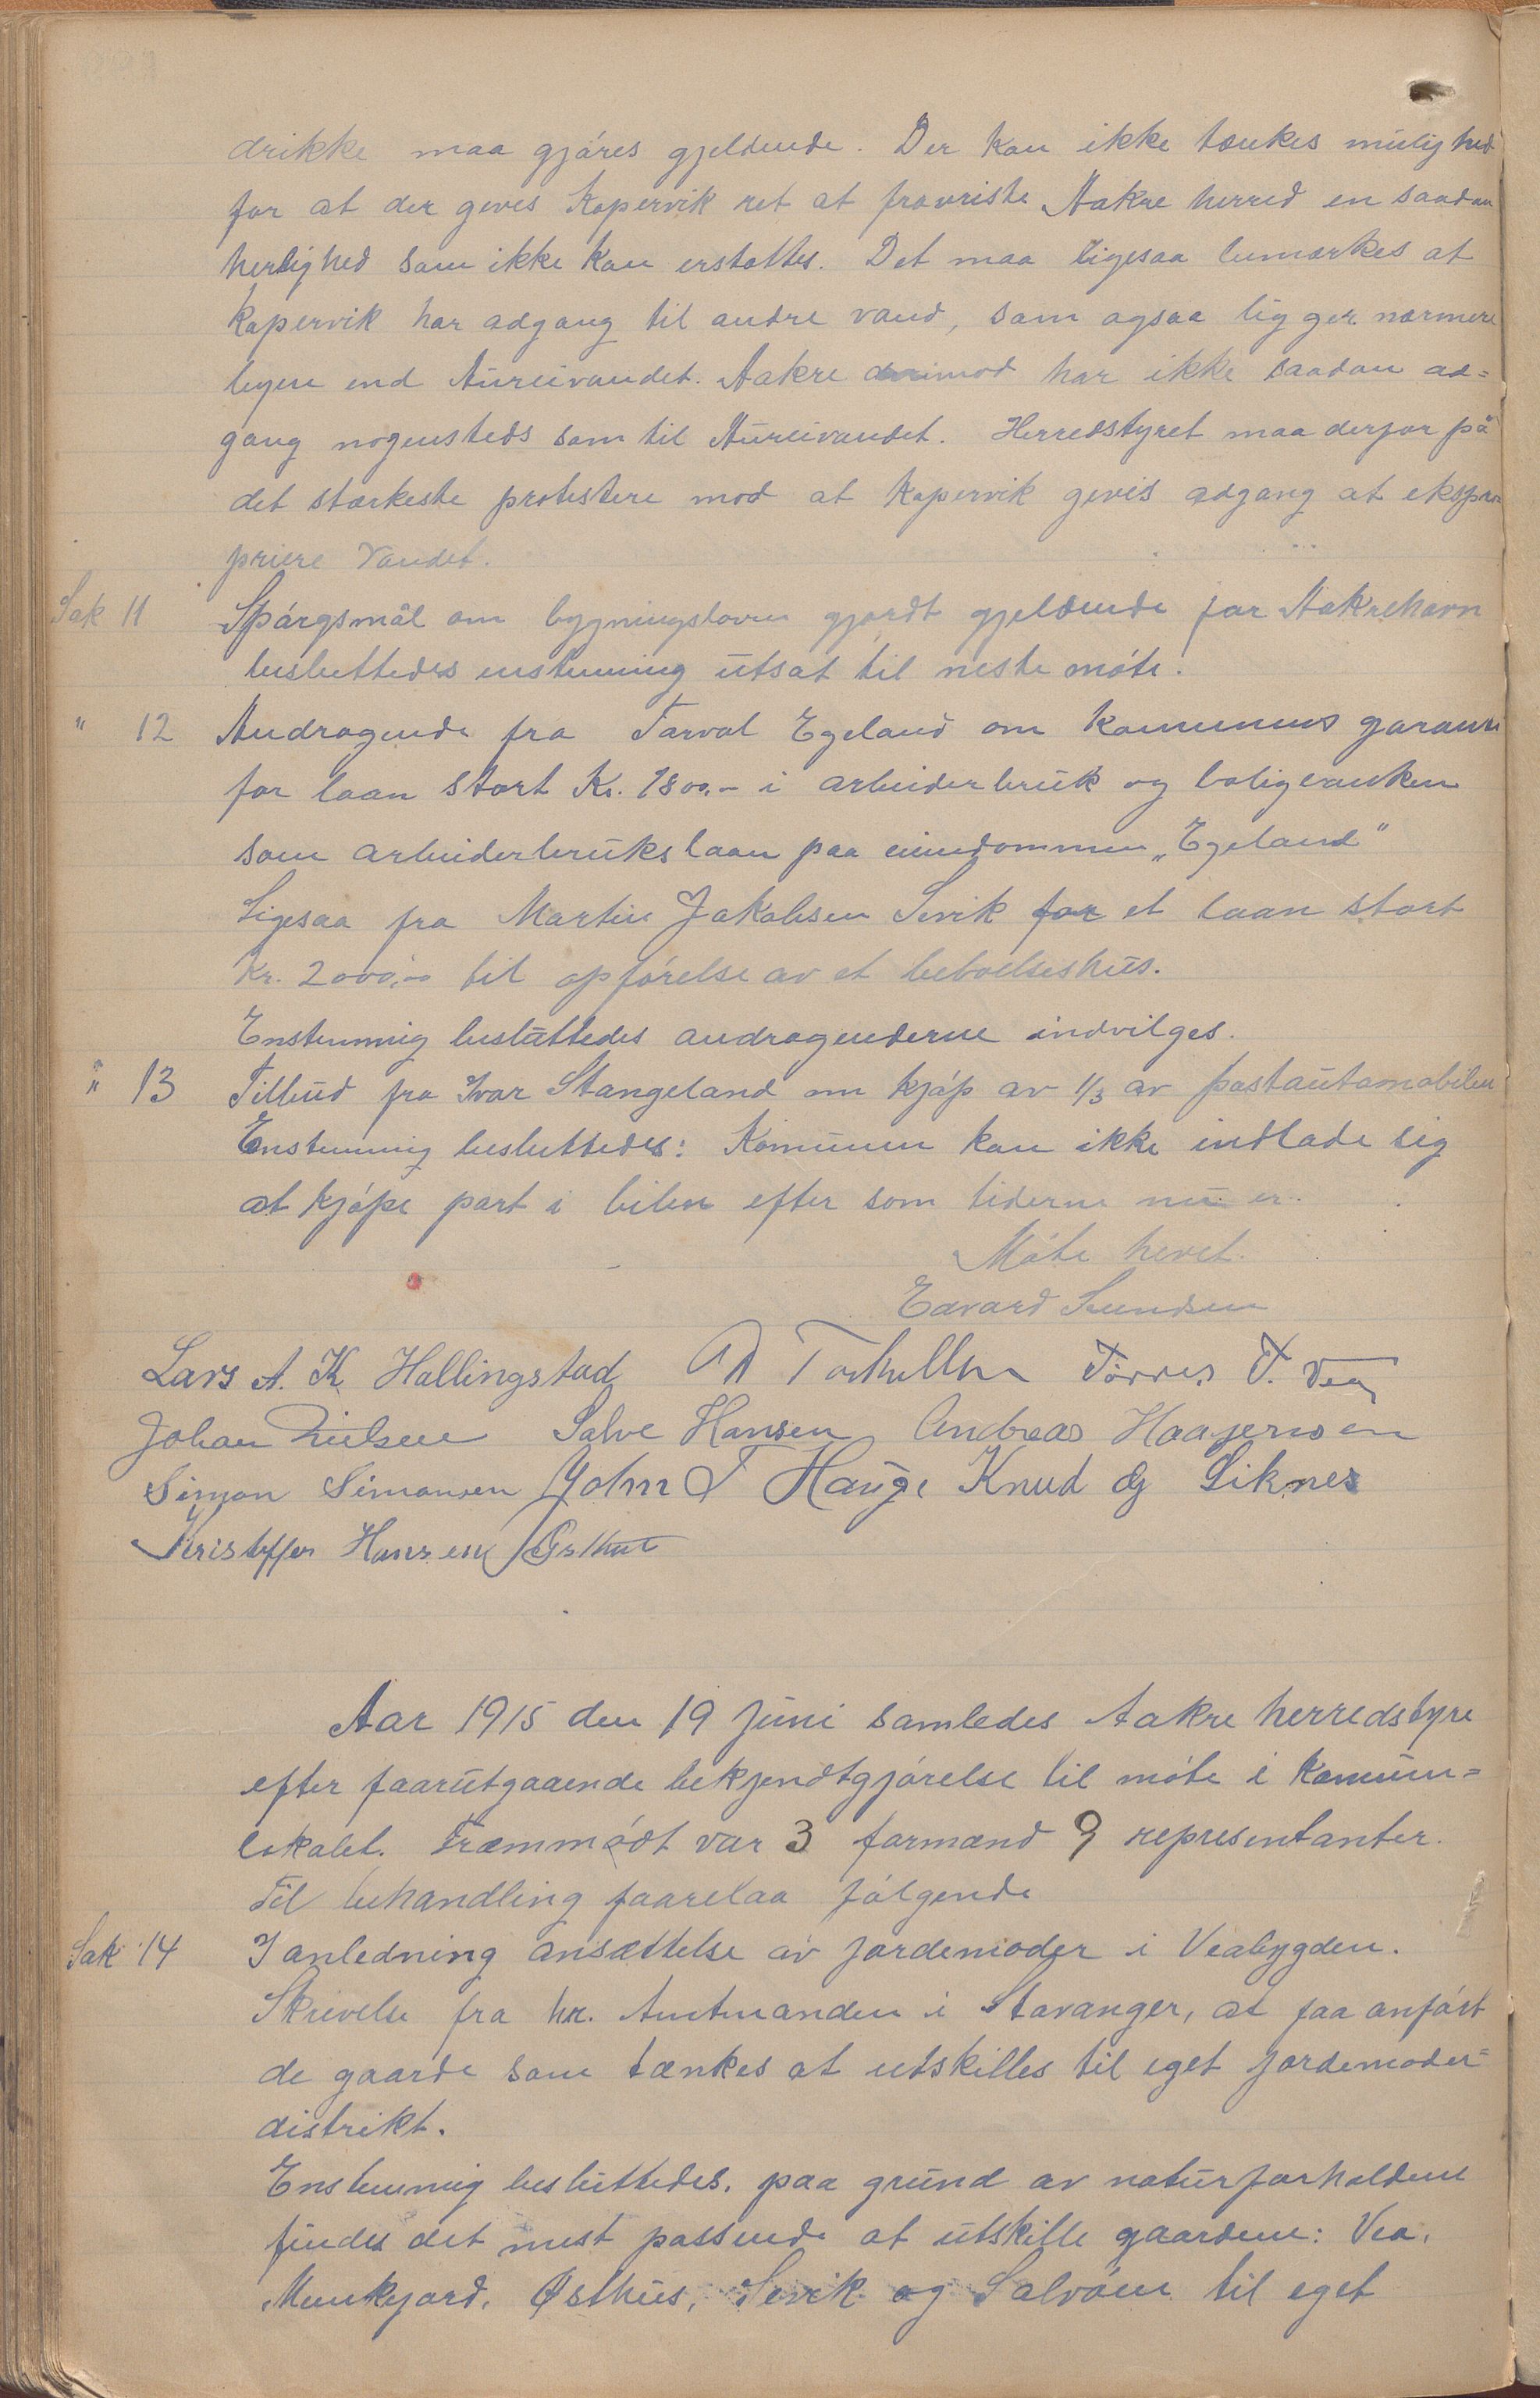 drikke maa gjøres gjeldende. Der kan ikke tænkes mulighed
for at der geves Kopervik ret at fravriste Aakre herred en saadan
herlighed som ikke kan erstattes. Det maa ligesaa bemærkes at
Kopervik har adgang til andre vand, som ogsaa ligger nærmere
byen end Aureivandet. Aakre derimod har ikke saadan ad=
gang nogensteds som til Aureivandet. Herredstyret maa derfor på
det stærkeste protestere mod at Kopervik gives adgang at ekspro=
priere Vandet.
Sak 11 Spørgsmål om bygningsloven gjordt gjeldende for Aakrehavn
besluttedes enstemmig utsat til neste møte.
" 12 Andragende fra Torval Egeland om Kommunens garanti
for laan stort Kr. 1800.- i arbeiderbruk og boligbanken
som arbeiderbrukslaan paa eiendommen „Egeland"
Ligesaa fra Martin Jakobsen Sevik for et laan stort
Kr. 2000,- til opførelse av et beboelseshus.
Enstemmig besluttedes andragenderne indvilges.
" 13 Tilbud fra Ivar Stangeland om kjøp av 1/3 av postautomobilen
Enstemmig besluttedes: Komunen kan ikke indlade sig
at kjøpe part i bilen efter som tiderne nu er.
Møte hevet.
Edvard Sundsen
Lars A. K. Hallingstad Torkellsen Tørres T. Vea
Johan Nielsen Salve Hansen Andreas Haagensen
Simon Simonsen John T Hauge Knud Liknes
Kristoffer Hansen Østhus
Aar 1915 den 19 Juni samledes Aakre herredstyre
efter foorutgaaende bekjendtgjørelse til møte i Komun=
lokalet. Fræmmødt var 3 formænd 9 representanter.
Til behandling foorelaa følgende
Sak 14 I anledning ansættelse av jordemoder i Veabygden.
Skrivelse fra hr. Amtmanden i Stavanger, at faa anført
de gaarde som tænkes at utskilles til eget jordemoder=
distrikt.
Enstemmig besluttedes. paa grund av naturforholdene
findes det mest passende at utskille gaardene: Vea,
Munkejord, Østhus, Sevik og Salvøen til eget